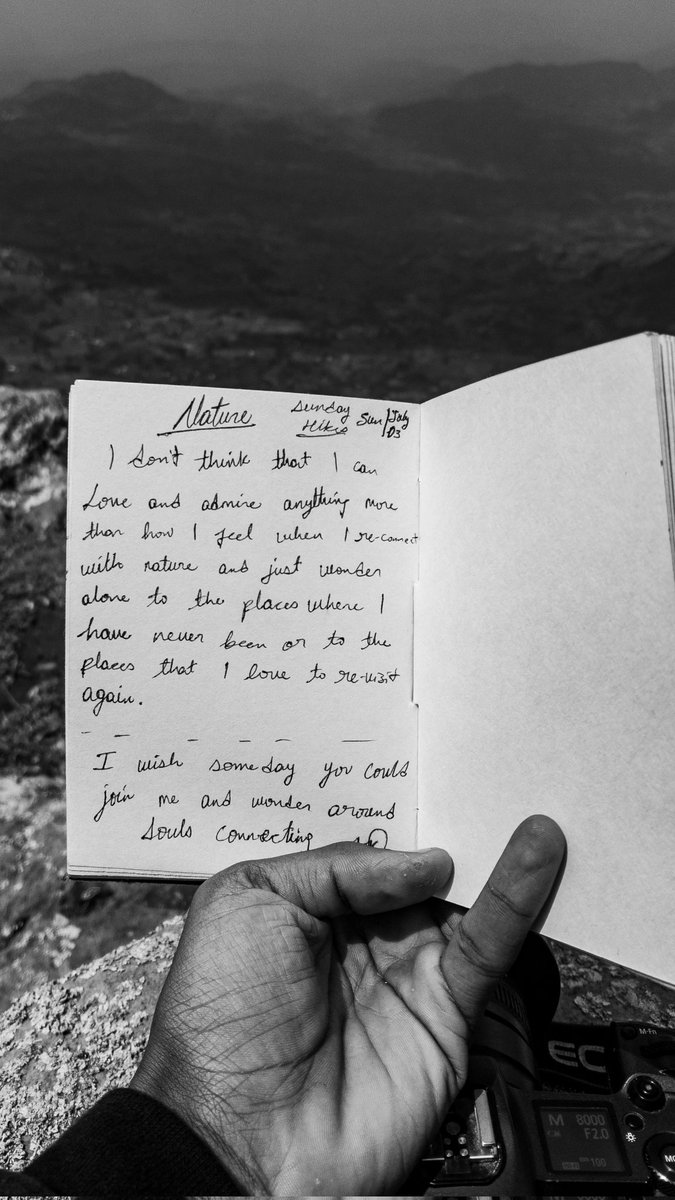 Nature
Sunday
Hike
Sun/July
03
I don't think that I can
Love and admire anything more
than how I feel when I re-connect
with nature and just wonder
alone to the places where I
have never been or to the
places that I love to re-visit
again.
I wish someday you could
join me and wonder around
Souls connecting
EO
M-Fn
M 8000
F2.0
100